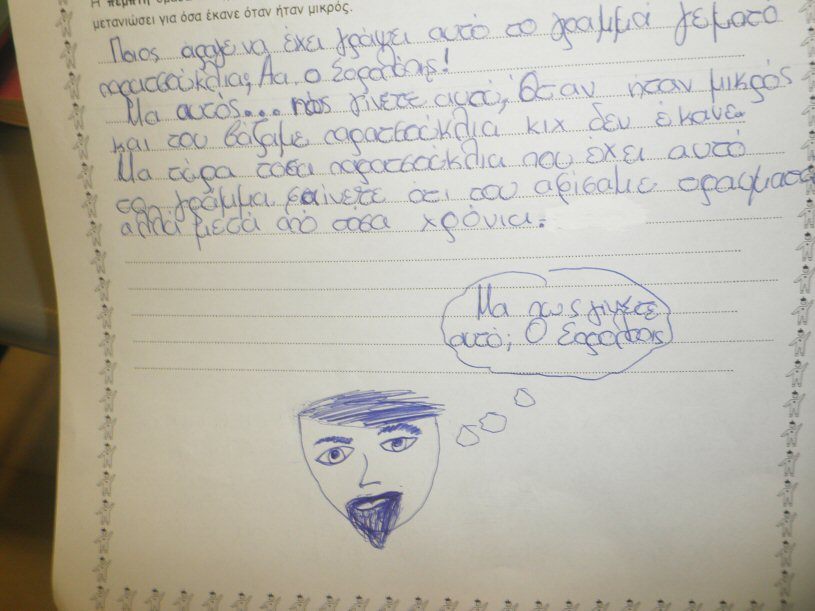 μετανιώσει για όσα έκανε όταν ήταν μικρός.
Ποιος άραγε να έχει γράψει αυτό το γράμμα γεμάτο
παρατσούκλια; Αα, ο
Μα αυτός... πώς γίνετε αυτό; Όταν ήταν μικρός
και του βάζαμε παρατσούκλια κιχ δεν έκανε.
Μα τώρα τόσα παρατσούκλια που έχει αυτό
το γράμμα φαίνετε οτι του αφίσαμε
αλλά μετά από τόσα χρόνια.
Μα πως γίνετε
αυτό; Ο